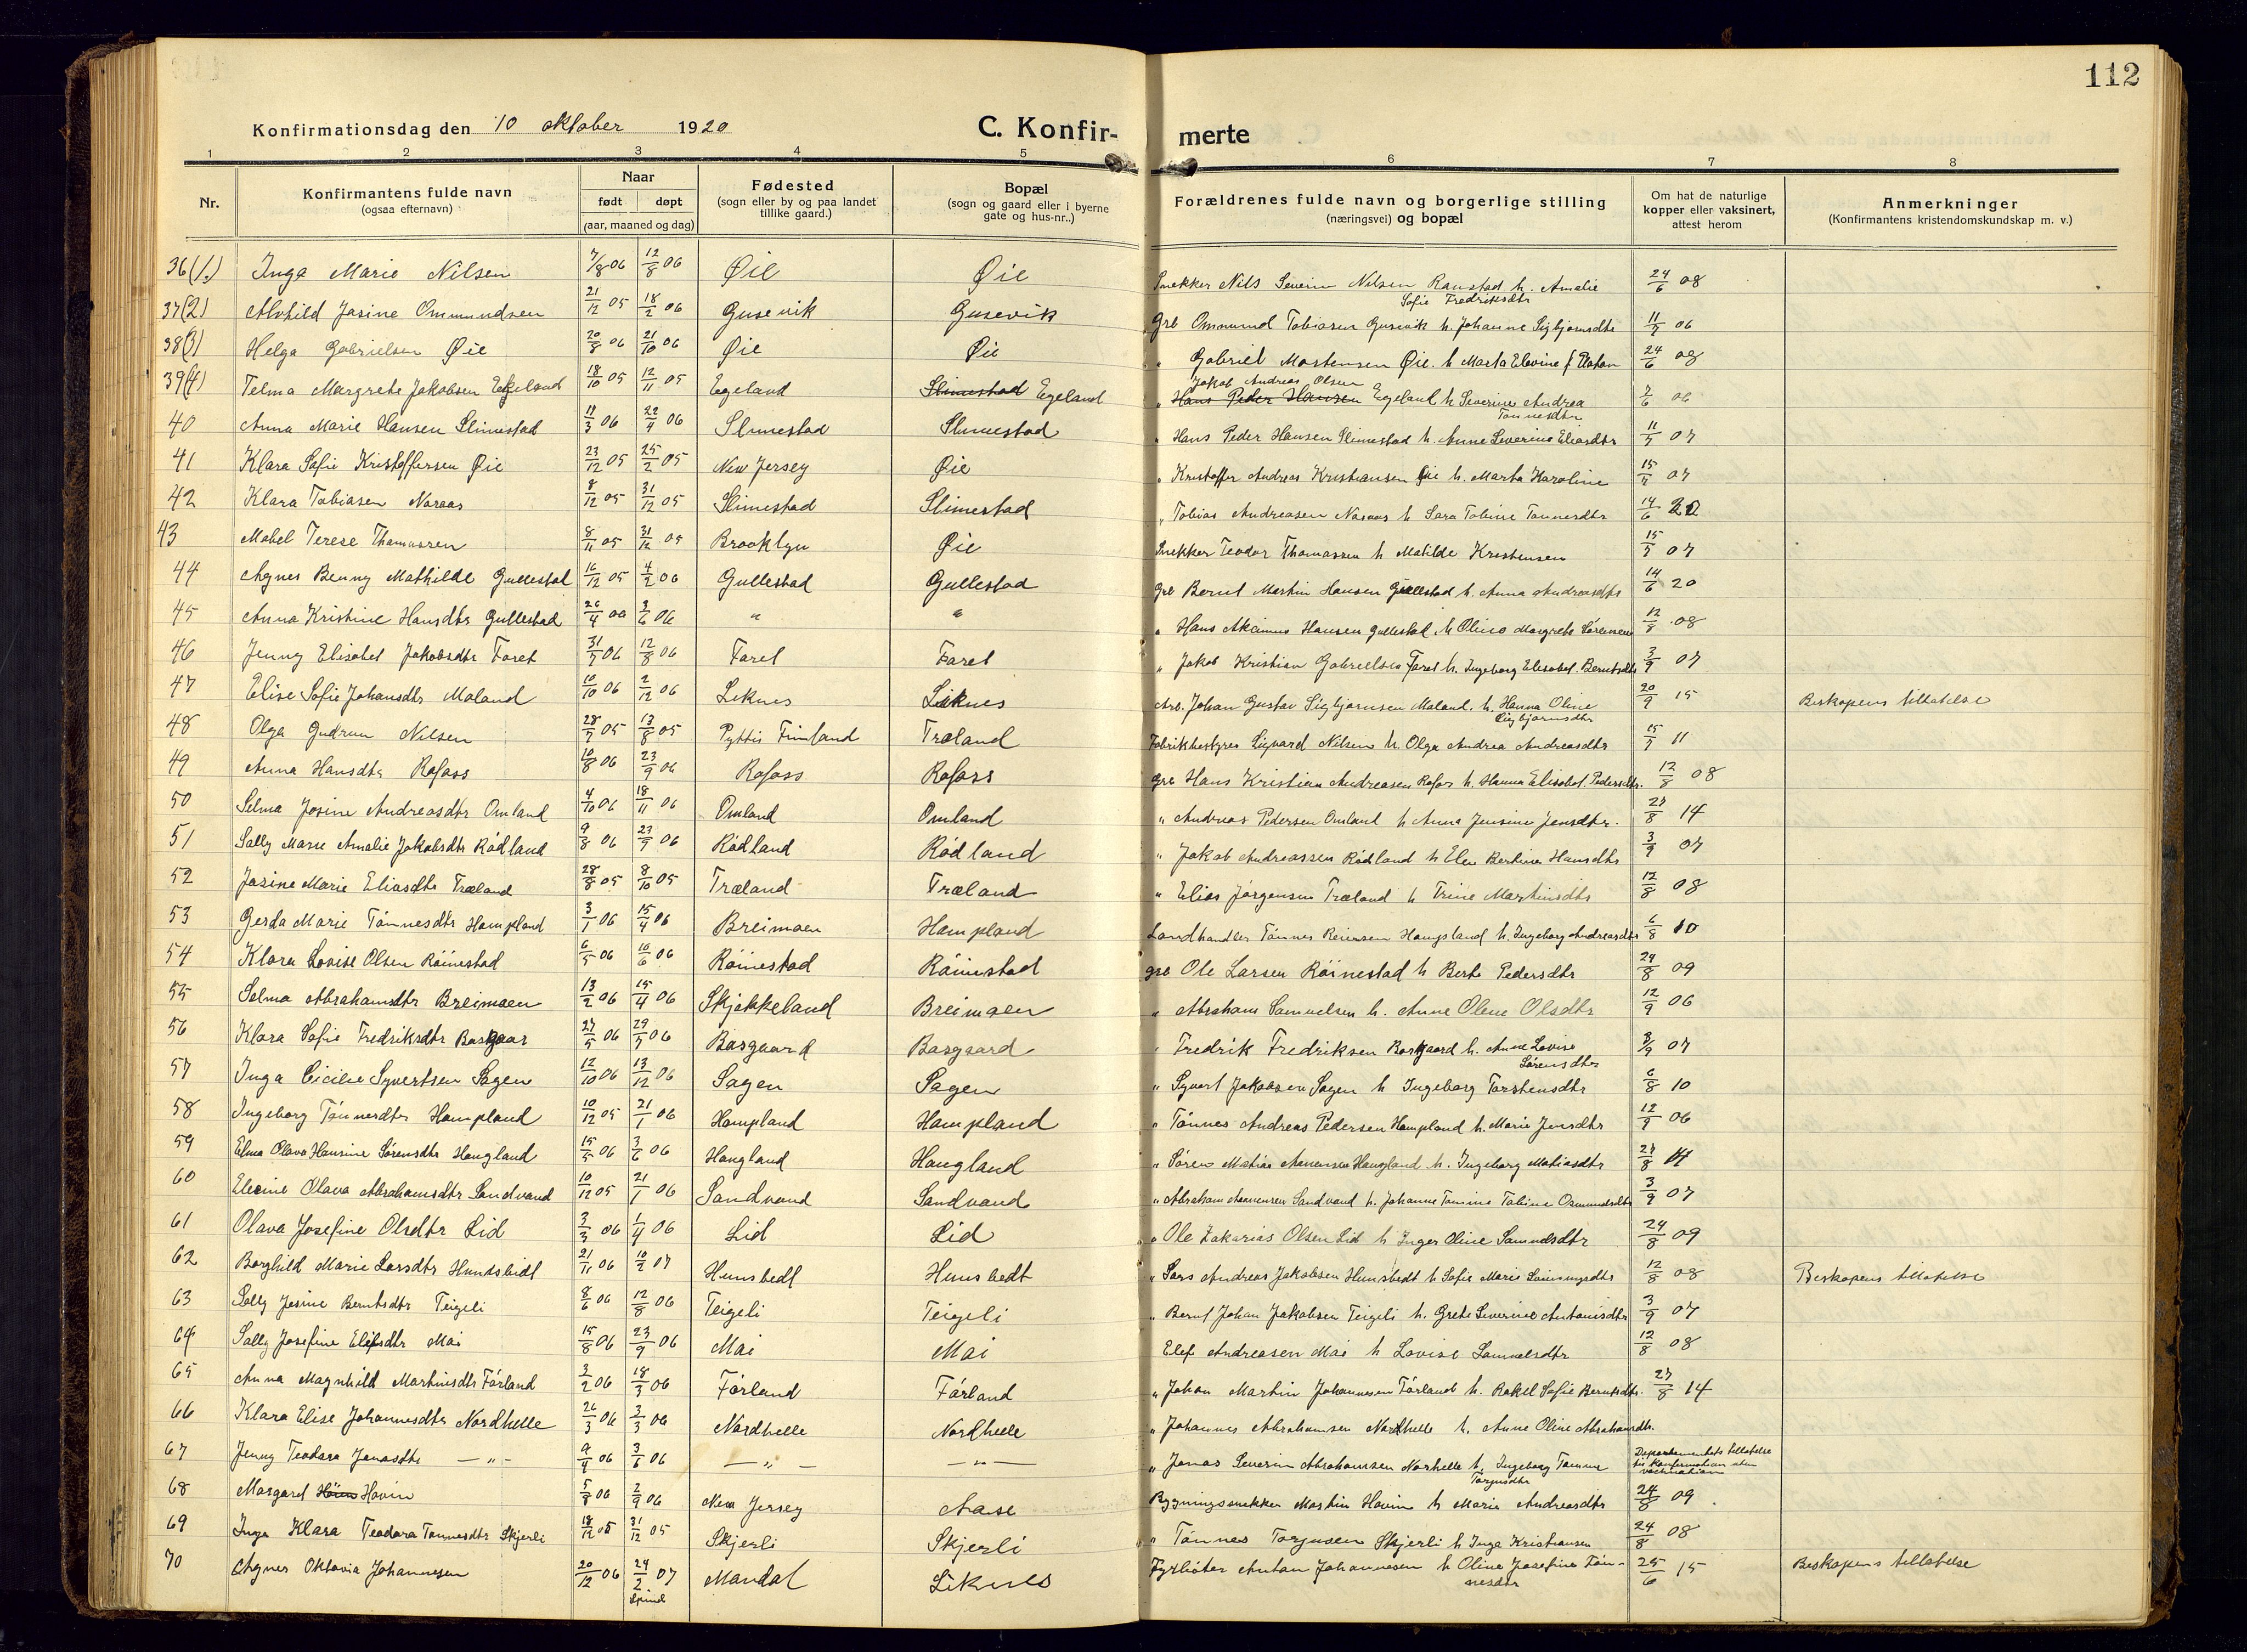 112
Konfirmationsdag den 10 oktober 1920
C. Konfir- merte
1 2 3 4 5 6 7 8
Nr.
Konfirmantens fulde navn
(ogsaa efternavn)
Naar
født døpt
(aar, maaned og dag)
Fødested
(sogn eller by og paa landet
tillike gaard.)
Bopæl
(sogn og gaard eller i byerne
gate og hus-nr..)
Forældrenes fulde navn og borgerlige stilling
(næringsvei) og bopæl
Om hat de naturlige
kopper eller vaksinert,
attest herom
Anmerkninger
(Konfirmantens kristendomskundskap m. v.)
36(1.) Inga Marie Nilsen 7/8 06 12/8 06 Øie Øie Snekker Nils Severin Nilsen Ranstad h. Amalie Sofie Fredriksdtr 24/6 08
37(2) Alvhild Josine Ommundsen 21/12 05 18/2 06 Gusevik Gusevik Grb Ommund Tobiasen Gusevik h. Johanne Sigbjørnsdtr 11/7 06
38(3) Helga Gabrielsen Øie 20/8 06 21/10 06 Øie Øie " Gabriel Mortensen Øie. h Marta Elevine 24/6 08
39(4) Telma Margrete Jakobsen Egeland 18/10 05 12/11 05 Egeland Slimestad Egeland " Jakob Andreas Olsen Hans Peder Hansen Egeland h Severine Andrea Tønnesdtr 06
40 Anna Marie Hansen Slimestad 11/3 06 22/4 06 Slimestad Slimestad " Hans Peder Hansen Slimestad h. Anne Severine Eliasdtr 07
41 Klara Sofie Kristoffersen Øie 23/12 05 25/2 05 New Jersey Øie " Kristoffer Andreas Kristiansen Øie h. Marta Karoline 07
42 Klara Tobiasen Noraas 8/12 05 31/12 05 Slimestad Slimestad " Tobias Andreasen Noraas h Sara Tobine Tønnesdtr 14/6 20
43 Mabel Terese Thomassen 8/11 05 31/12 05 Brooklyn Øie Snekker Teodor Thomassen h Matilde Kristensen 07
44 Agnes Benny Mathilde Gullestad 16/12 05 4/2 06 Gullestad Gullestad Grb Bernt Martin Hansen Gullestad h. Anna Andreasdtr 14/6 20
45 Anna Kristine Hansdtr Gullestad 26/4 06 3/6 06 " " " Hans Hansen Gullestad h Margrete Sørensen 12/8 08
46 Jenny Elisabet Jakobsdtr Faret 31/5 06 12/8 06 Faret Faret " Jakob Kristian Gabrielsen Faret h. Ingeborg Elisabet Berntsdtr 3/9 07
47 Elise Sofie Johansdtr Moland 10/10 06 2/12 06 Liknes Liknes Arb. Johan Gustav Sigbjørnsen Moland. h. Hanna Oline Sigbjørnsdtr 20/9 15 Biskopens tillatelse
48 Olga Gudrun Nilsen 28/5 05 13/8 05 Pyttis Finland Træland Fabrikbestyrer Sigvard Nilsen h. Olga Andrea Andreasdtr 11
49 Anna Hansdtr Rafoss 10/8 06 23/9 06 Rafoss Rafoss Grb Hans Kristian Andreasen Rafos h. Hanna Elisabet. Pedersdtr. 12/8 08
50 Selma Josine Andreasdtr Omland 4/10 06 18/11 06 Omland Omland " Andreas Pedersen Omland h Anna Jensine Jensdtr. 27/8 14
51 Sally Marie Amalie Jakobsdtr Rødland 9/8 06 23/9 06 Rødland Rødland " Jakob Andreassen Rødland h Elen Bertine Hansdtr 3/9 07
52 Josine Marie Eliasdtr Træland 28/8 05 8/10 05 Træland Træland " Elias Jørgensen Træland h Trine Martinsdtr 12/8 08
53 Gerda Marie Tønnesdtr Hompland 3/1 06 15/4 06 Breimoen Hompland Landhandler Tønnes Reiersen Hompland h. Ingeborg Andreasdtr 6/8 10
54 Klara Lovise Olsen Røinestad 6/5 06 10/6 06 Røinestad Røinestad grb Ole Larsen Røinestad h Berte Pedersdtr 24/8 09
55 Selma Abrahamsdtr Breimoen 13/2 06 15/4 06 Skjekkeland Breimoen " Abraham Samuelsen h. Anne Olene Olsdtr 12/9 06
56 Klara Sofie Fredriksdtr 27/5 06 29/7 06 Basgaard Basgaard " Fredrik Fredriksen h. Anne Lovise Sørensdtr 3/9 07
57 Inga Cicilie Syvertsen Sagen 12/10 06 13/12 06 Sagen Sagen " Syvert Jakobsen Sagen h Ingeborg Torstensdtr 6/8 10
58 Ingeborg Tønnesdtr Hompland 10/12 05 21/1 06 Hompland Hompland " Tønnes Andreas Pedersen Hompland h. Marie Jensdtr 12/9 06
59 Elma Olava Hansine Sørensdtr Haugland 15/5 06 3/6 06 Haugland Haugland " Søren Matias Haugland h. Ingeborg Matiasdtr 27/8 14
60 Elevine Olava Abrahamsdtr Sandvand 10/12 05 21/1 06 Sandvand Sandvand " Abraham Sandvand h. Johanne Tomine Tobine Osmundsdtr 3/9 07
61 Olava Josefine Olsdtr Lid 3/3 06 1/4 06 Lid Lid " Ole Zakarias Olsen Lid h Inger Oline Samuelsdtr 24/8 09
62 Borghild Marie Larsdtr Hunsbedt 21/11 06 10/2 07 Hunsbedt Hunsbedt " Lars Andreas Jakobsen Hunsbedt h Sofie Marie 12/8 08 Biskopens tillatelse
63 Sally Jesine Berntsdtr Teigeli 8/6 06 12/8 06 Teigeli Teigeli " Bernt Johan Jakobsen Teigeli h. Grete Severine Antonisdtr 3/9 07
64 Sally Josefine Elefsdtr Moi 15/8 06 23/9 06 Moi Moi Elef Andreasen Moi h Lovise Samuelsdtr 12/8 08
65 Anna Magnhild Martinsdtr Førland 3/2 06 18/3 06 Førland Førland " Johan Martin Johannesen Førland h. Rakel Sofie Berntsdtr. 27/8 14
66 Klara Elise Johannesdtr Nordhelle 26/3 06 3/3 06 Nordhelle Nordhelle " Johannes Abrahamsen Nordhelle h. Anne Oline Abrahamsdtr.
67 Jenny Teodora Jonasdtr — " — 06 3/6 06 — " — — " — " Jonas Severin Abrahamsen Norhelle h, Ingeborg Tomine Torjusdtr Departementets tillatelse til konfirmation uten vaccination
68 Margaret Hovin 5/8 06 2/9 06 New Jersey Aase Bygningssnekker Martin Hovin h Marie Andreasdtr 24/8 09
69 Inga Klara Teodora Tønnesdtr Skjerli 18/12 05 31/12 05 Skjerli Skjerli " Tønnes Torjusen Skjerli h Inga Kristiansen 24/8 08
70 Agnes Oktavia Johannesen 20/12 06 24/2 07 Spind Mandal Liknes Fyrbøter Anton Johannesen h Oline Josefine Tønnesdtr 25/6 15 Biskopens tillatelse